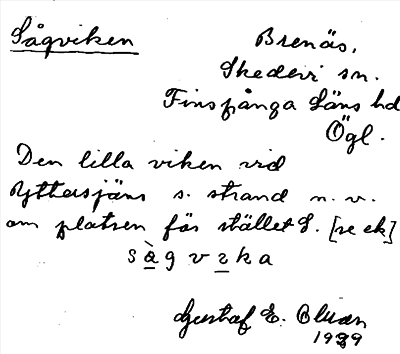 Sågviken
Brenäs,
Skedevi sn.
Finspånga läns hd
Ögl.
Den lilla viken vid
Yttersjöns s. strand n. v.
om platsen för stället S. [se ek]
sàgvıka
Gustaf E. Bluan
1929